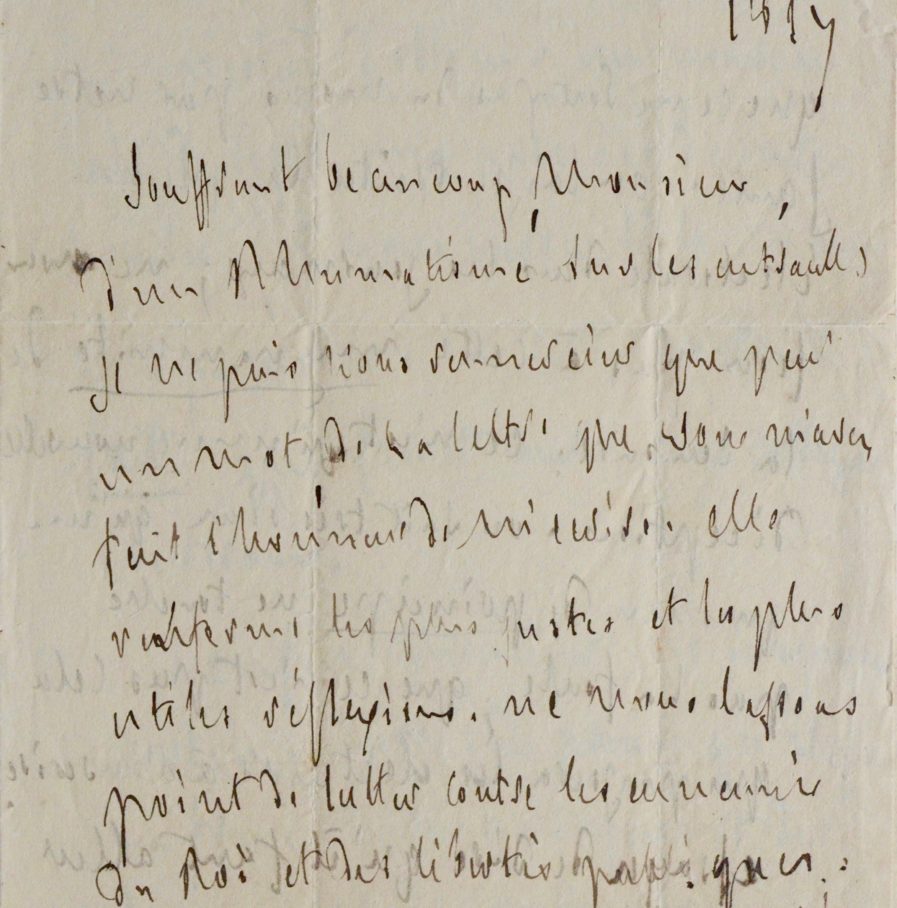 Souffrant beaucoup, Monsieur,
d'un Rhumatisme sur les entrailles
je ne puis vous remercier que par
un mot de la lettre que vous m'avez
fait l'honneur de m'écrire. elle
renferme les plus justes et les plus
utiles réflexions. ne nous lassons
point de lutter contre les ennemis
du Roi et des libertés publiques.